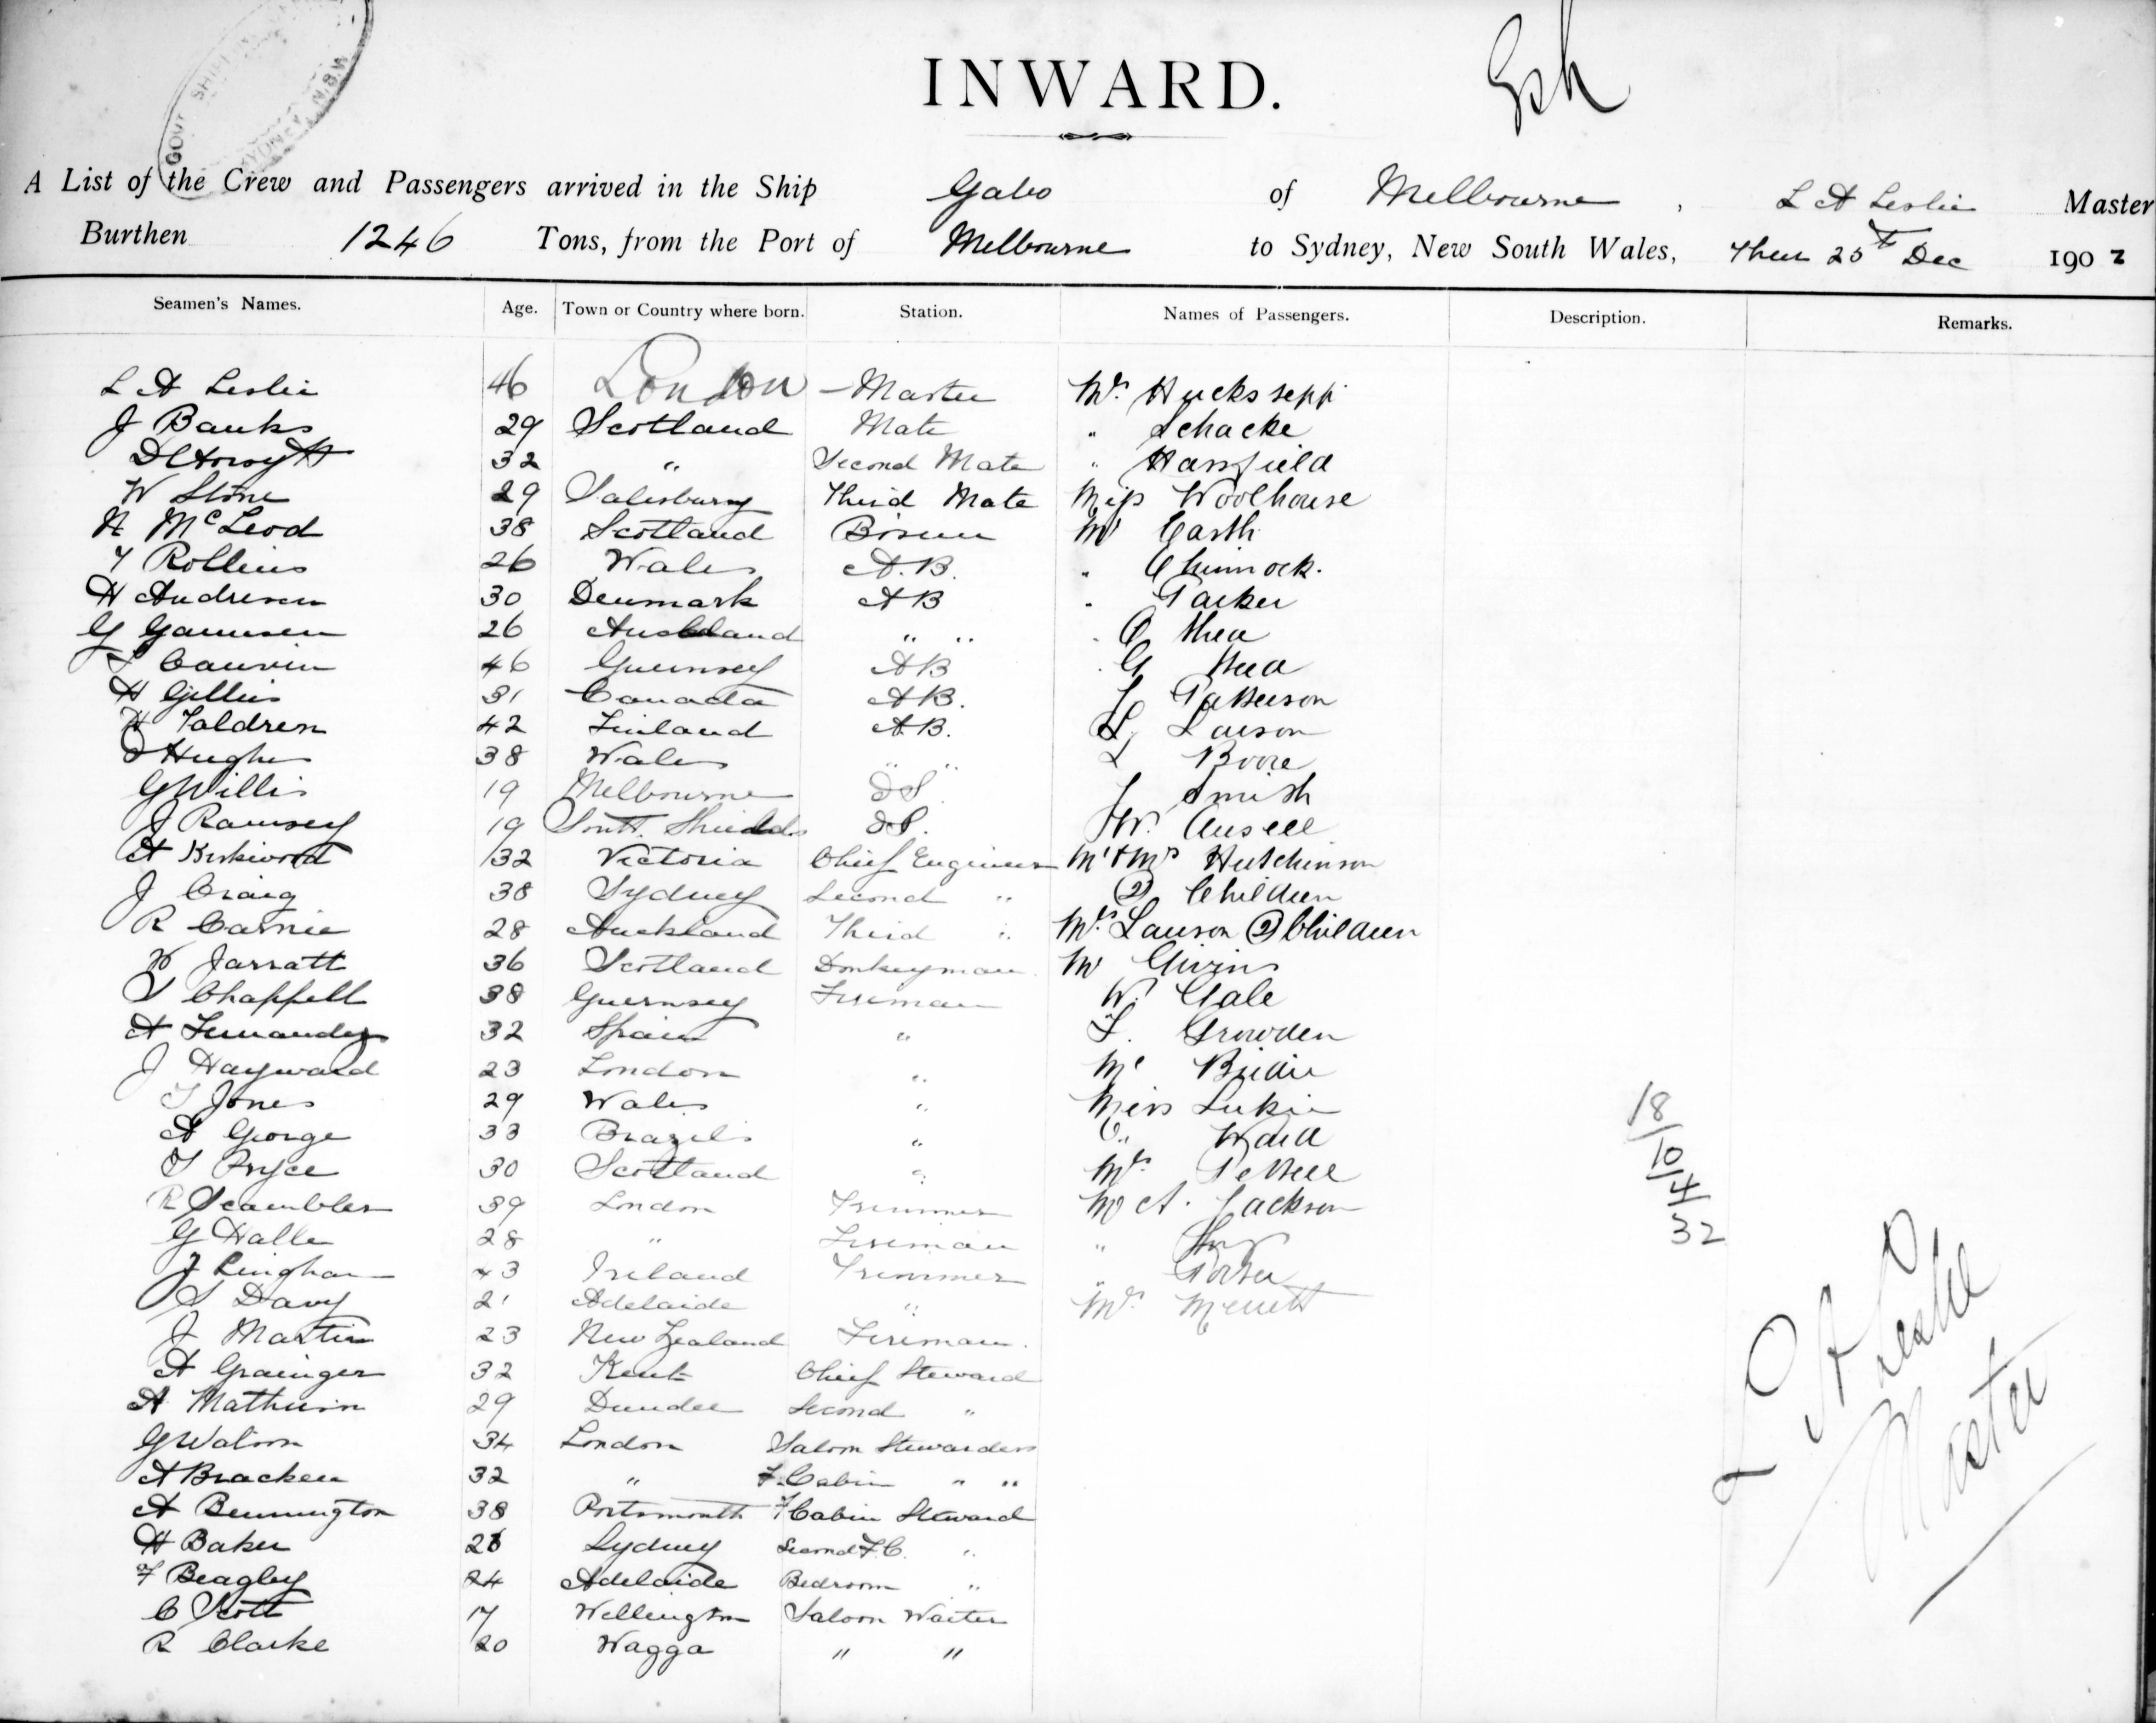 GOVT SHIPPING SYDNEY N.S.W.
INWARD.
A List of the Crew and Passengers arrived in the Ship Gabo of Melbourne, L A Leslie Master
Burthen 1246 Tons, from the Port of Melbourne to Sydney, New South Wales, Thur 25th Dec 1902
Seamen's Names. Age. Town or Country where born. Station. Names of Passengers. Description. Remarks.
L A Leslie 46 London Master Mrs Huckssepp
J Banks 29 Scotland Mate " Schacke
32 " Second Mate " Hansfield
W Stone 29 Salisbury Third Mate Miss Woolhouse
N McLeod 38 Scotland Bosun Mr Earth
T Rollins 26 Wales A.B. " Chinnock.
H Andresen 30 Denmark AB " Parker
G 26 Auckland " " " O Shea
Cauvin 46 Guernsey AB " G Shea
H Gillies 31 Canada AB. J Patterson
H Toldren 42 Finland A.B. L Lawson
D Hughes 38 Wales " " L Boore
G Willis 19 Melbourne OS J Smith
J Ramsey 19 South Shields OS. W. Ansell
A Kirkwood 32 Victoria Chief Engineer Mr & Mrs Hutchinson
J Craig 38 Sydney Second " (2) Children
R Carnie 28 Auckland Third " Mrs Lawson (2) Children
W Jarratt 36 Scotland Donkeyman Mr Givins
S Chappell 38 Guernsey Fireman W. Gale
A Fernandez 32 Spain " F. Growden
J Hayward 23 London " Mr Birdie
T Jones 29 Wales " Miss Lukin
A George 33 Brazils " " Ward
T Pryce 30 Scotland " Mrs Pettell
R Scambler 39 London Trimmer Mr A. Jackson
G Halle 28 " Fireman "
J Lingham 43 Ireland Trimmer " Porter
S Davy 21 Adelaide " Mrs Merrett
J Martin 23 New Zealand Fireman.
A Grainger 32 Kent Chief Steward
A Mathieson 29 Dundee Second "
G Watson 34 London Saloon Stewardess
A Bracken 32 " F. Cabin " "
A Bennington 38 Portsmouth F Cabin Steward
H Baker Sydney Second F.C. "
F Beagley 24 Adelaide Bedroom "
C Scott 17 Wellington Saloon Waiter
R Clarke 20 Wagga " "
18/10/4/32
L A Leslie
Master